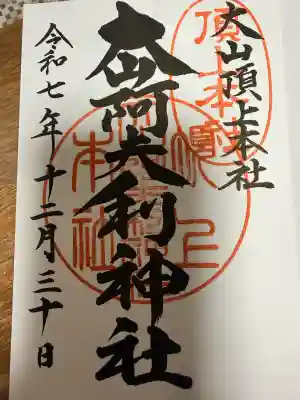 大山頂上本社
頂上本社
大山阿夫利神社
頂上
本社
令和七年十二月三十日